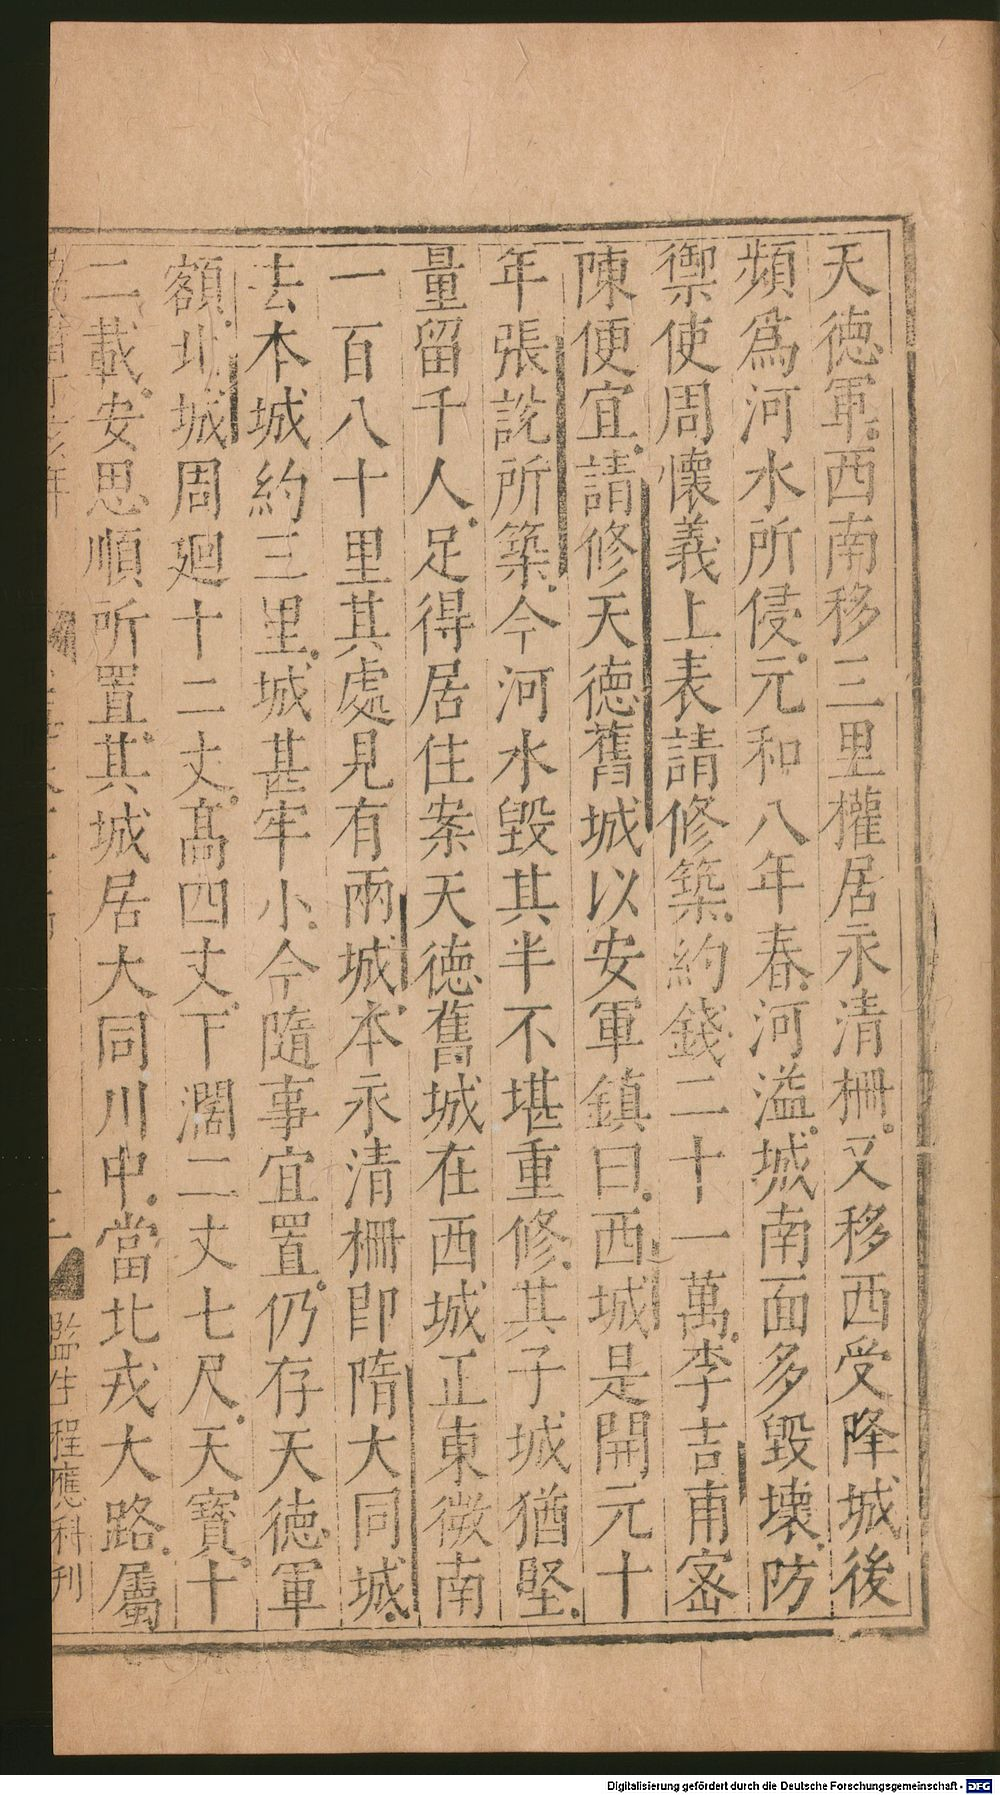 天德軍西南移三里權居永清柵又移西受降城後
頻爲河水所侵元和八年春河溢城南面多毀壞防
禦使周懷義上表請修築約錢二十一萬李吉甫密
陳便宜請修天德舊城以安軍鎮曰西城是開元十
年張説所築今河水毀其半不堪重修其子城猶堅
量留千人足得居住案天德舊城在西城正東微南
一百八十里其處見有兩城本永清柵即隋大同城
去本城約三里城甚牢小今隨事宜置仍存天德軍
額北城周廻十二丈高四丈下濶二丈七尺天寶十
二載安思順所置其城居大同川中當北戎大路屬
監生程應科刊
Digitalisierung gefördert durch die Deutsche Forschungsgemeinschaft - DFG